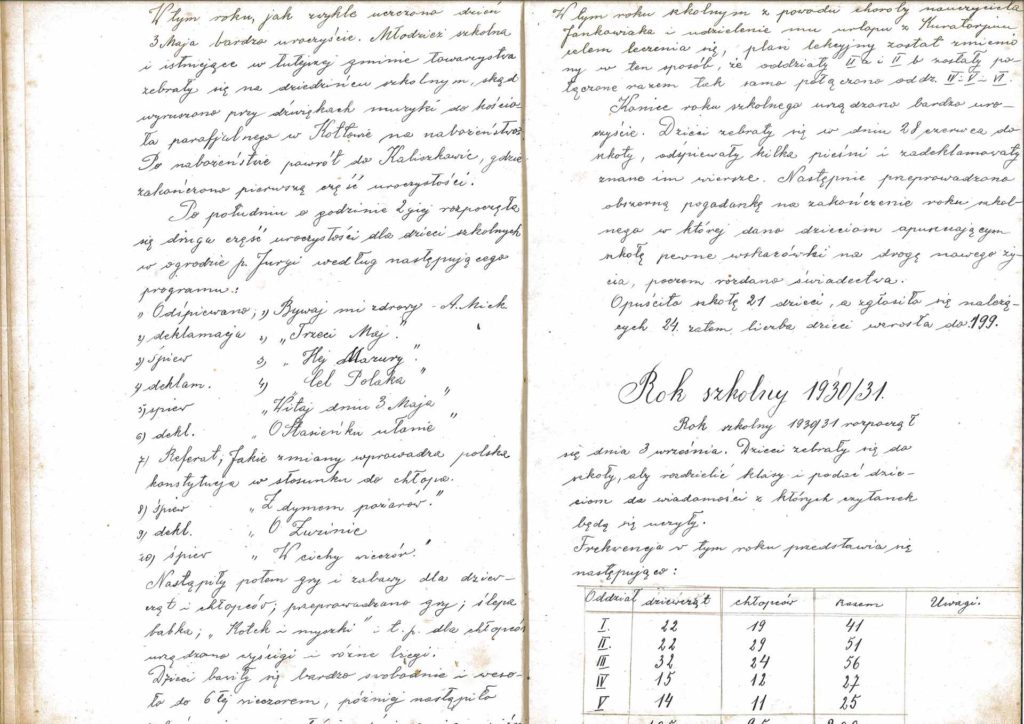 W tym roku, jak zwykle uczczono dzień
3 Maja bardzo uroczyście. Młodzież szkolna
i istniejące w tutejszej gminie towarzystwa
zebrały się na dziedzińcu szkolnym, skąd
wyruszono przy dźwiękach muzyki do kościo-
ła parafjalnego w Kotłowie na nabożeństwo.
Po nabożeństwie powrót do Kaliszkowic, gdzie
zakończono pierwszą część uroczystości.
Po południu o godzinie 2giej rozpoczęła
się druga część uroczystości dla dzieci szkolnych
w ogrodzie p. Jurgi według następującego
programu:
" Odśpiewano, 1) Bywaj mi zdrowy - A. Mick
2) deklamacja 2) „Trzeci Maj."
3) śpiew 3) „Hej Mazury."
4) deklam. 4) Cel Polaka"
5) śpiew „Witaj dniu 3 Maja"
6) dekl. „O Stasieńku ułanie"
7) Referat, Jakie zmiany wprowadza polska
konstytucja w stosunku do chłopa.
8) śpiew „Z dymem pożarów."
9) dekl. „O Żwinie
10) śpiew „W cichy wieczór."
Nastąpiły potem gry i zabawy dla dziew-
cząt i chłopców; przeprowadzono gry; ślepa
babka; „Kotek i myszki" i t. p. dla chłopców
urządzono wyścigi i różne biegi.
Dzieci bawiły się bardzo swobodnie i weso-
ło do 6tej wieczorem, później nastąpiło
W tym roku szkolnym z powodu choroby nauczyciela
Jankowiaka i udzielenie mu urlopu z Kuratorjum
celem leczenia się, plan lekcyjny został zmienio
ny w ten sposób, że oddziały II a i II b zostały po
łączone razem tak samo połączono oddz. IV - V - VI.
Koniec roku szkolnego urządzono bardzo uro-
czyście. Dzieci zebrały się w dniu 28 czerwca do
szkoły, odśpiewały kilka pieśni i zadeklamowały
znane im wiersze. Następnie przeprowadzono
obszerną pogadankę na zakończenie roku szkol-
nego w której dano dzieciom opuszczającym
szkołę pewne wskazówki na drogę nowego ży-
cia, poczem rozdano świadectwa.
Opuściło szkołę 21 dzieci, a zgłosiło się należą-
cych 24. zatem liczba dzieci wzrosła do 199.
Rok szkolny 1930/31.
Rok szkolny 1930/31 rozpoczął
się dnia 3 września. Dzieci zebrały się do
szkoły, aby rozdzielić klasy i podać dzie-
ciom do wiadomości z których czytanek
będą się uczyły.
Frekwencja w tym roku przedstawia się
następująco:
Oddział dziewcząt chłopców Razem Uwagi.
I. 22 19 41
II. 22 29 51
III 32 24 56
IV 15 12 27
V 14 11 25